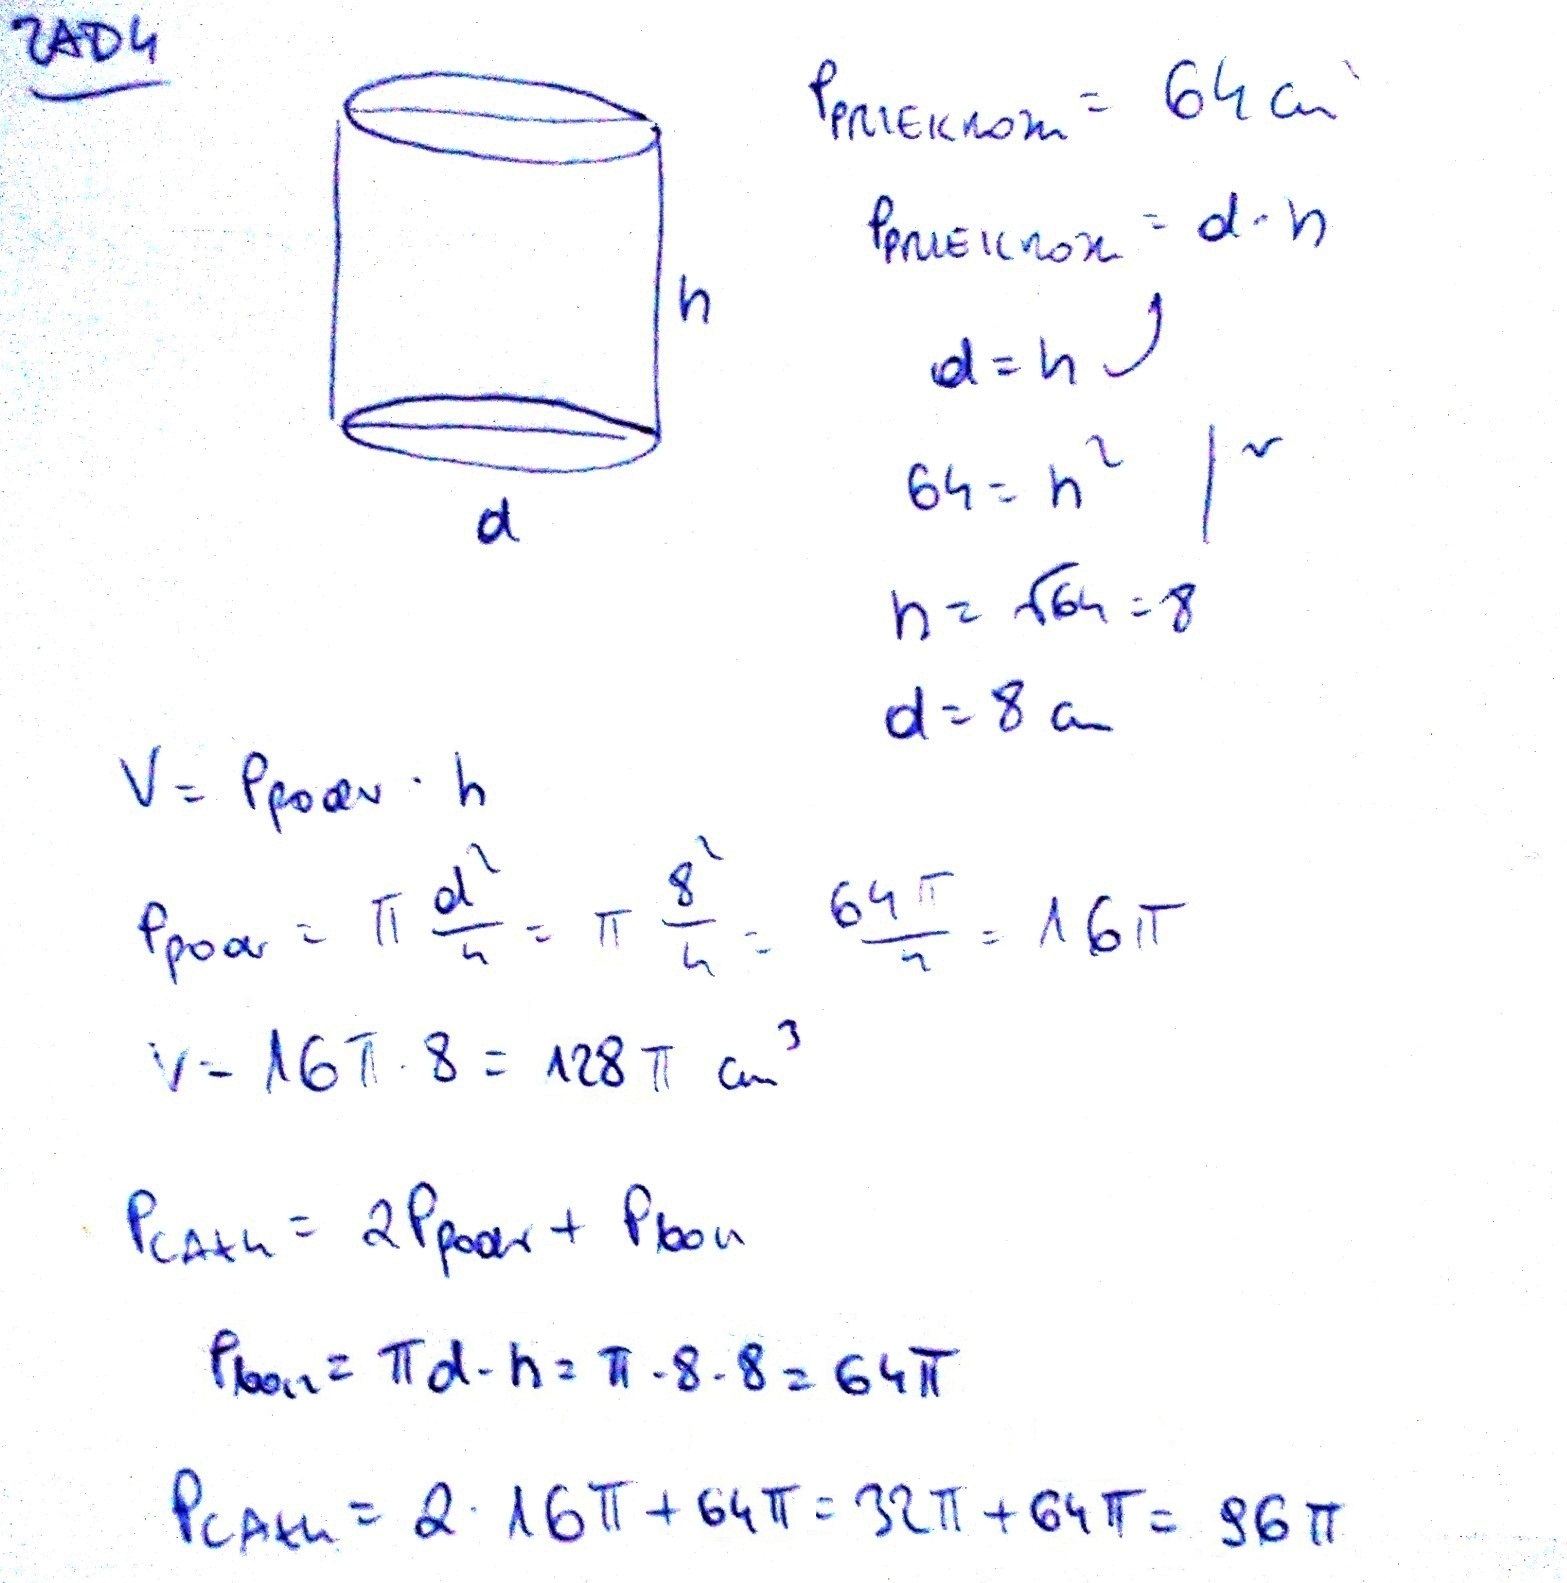 ZAD4
P_PRZEKROJU = 64 cm²
P_PRZEKROJU = d · h
d = h
h
64 = h² | √
d
h = √64 = 8
d = 8 cm
V = P_podst · h
P_podst = π d²/4 = π 8²/4 = 64π/4 = 16π
V = 16π · 8 = 128π cm³
P_CAŁK = 2P_podst + P_bocz
P_bocz = πd · h = π · 8 · 8 = 64π
P_CAŁK = 2 · 16π + 64π = 32π + 64π = 96π